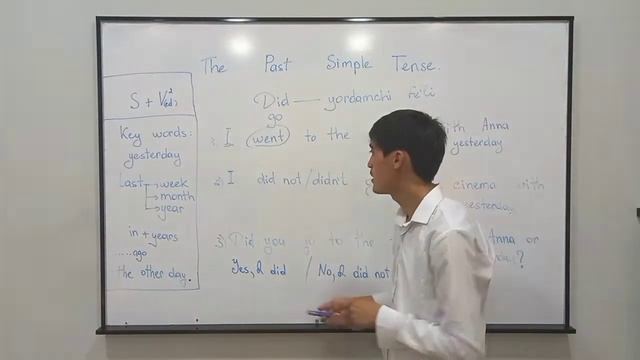 The Past Simple Tense.
S + V²(ed)
Key words:
yesterday
Last → week
→ month
→ year
in + years
.....ago
the other day.
Did — yordamchi fe'li
go
1) I went to the with Anna
yesterday
2) I did not/didn't cinema with
yesterday
3) Did you go to the Anna or
?
Yes, I did / No, I did not